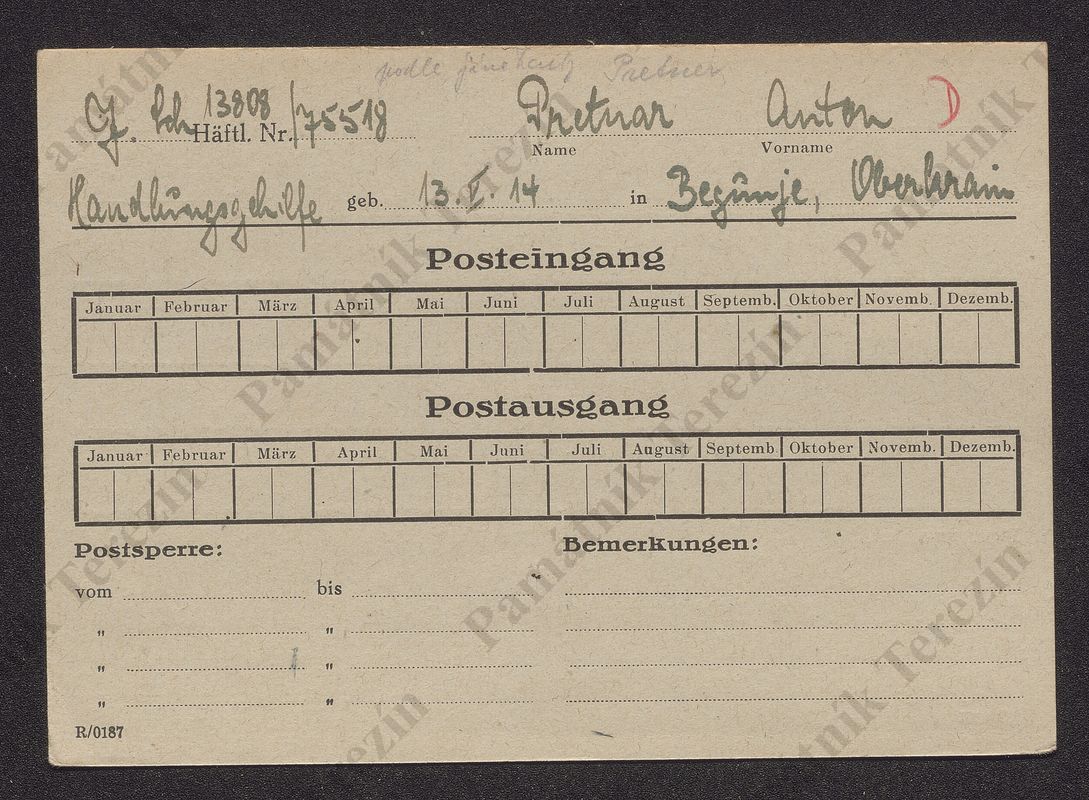 podle Pretner
J. Sch. 13808 / 75518 Pretnar Anton D
Häftl. Nr. Name Vorname
Handlungsgehilfe geb. 13.V.14 in Begunje, Oberkrain
Posteingang
Januar Februar März April Mai Juni Juli August Septemb. Oktober Novemb. Dezemb.
Postausgang
Januar Februar März April Mai Juni Juli August Septemb. Oktober Novemb. Dezemb.
Postsperre: Bemerkungen:
vom bis
" "
" "
" "
R/0187
Památník Terezín